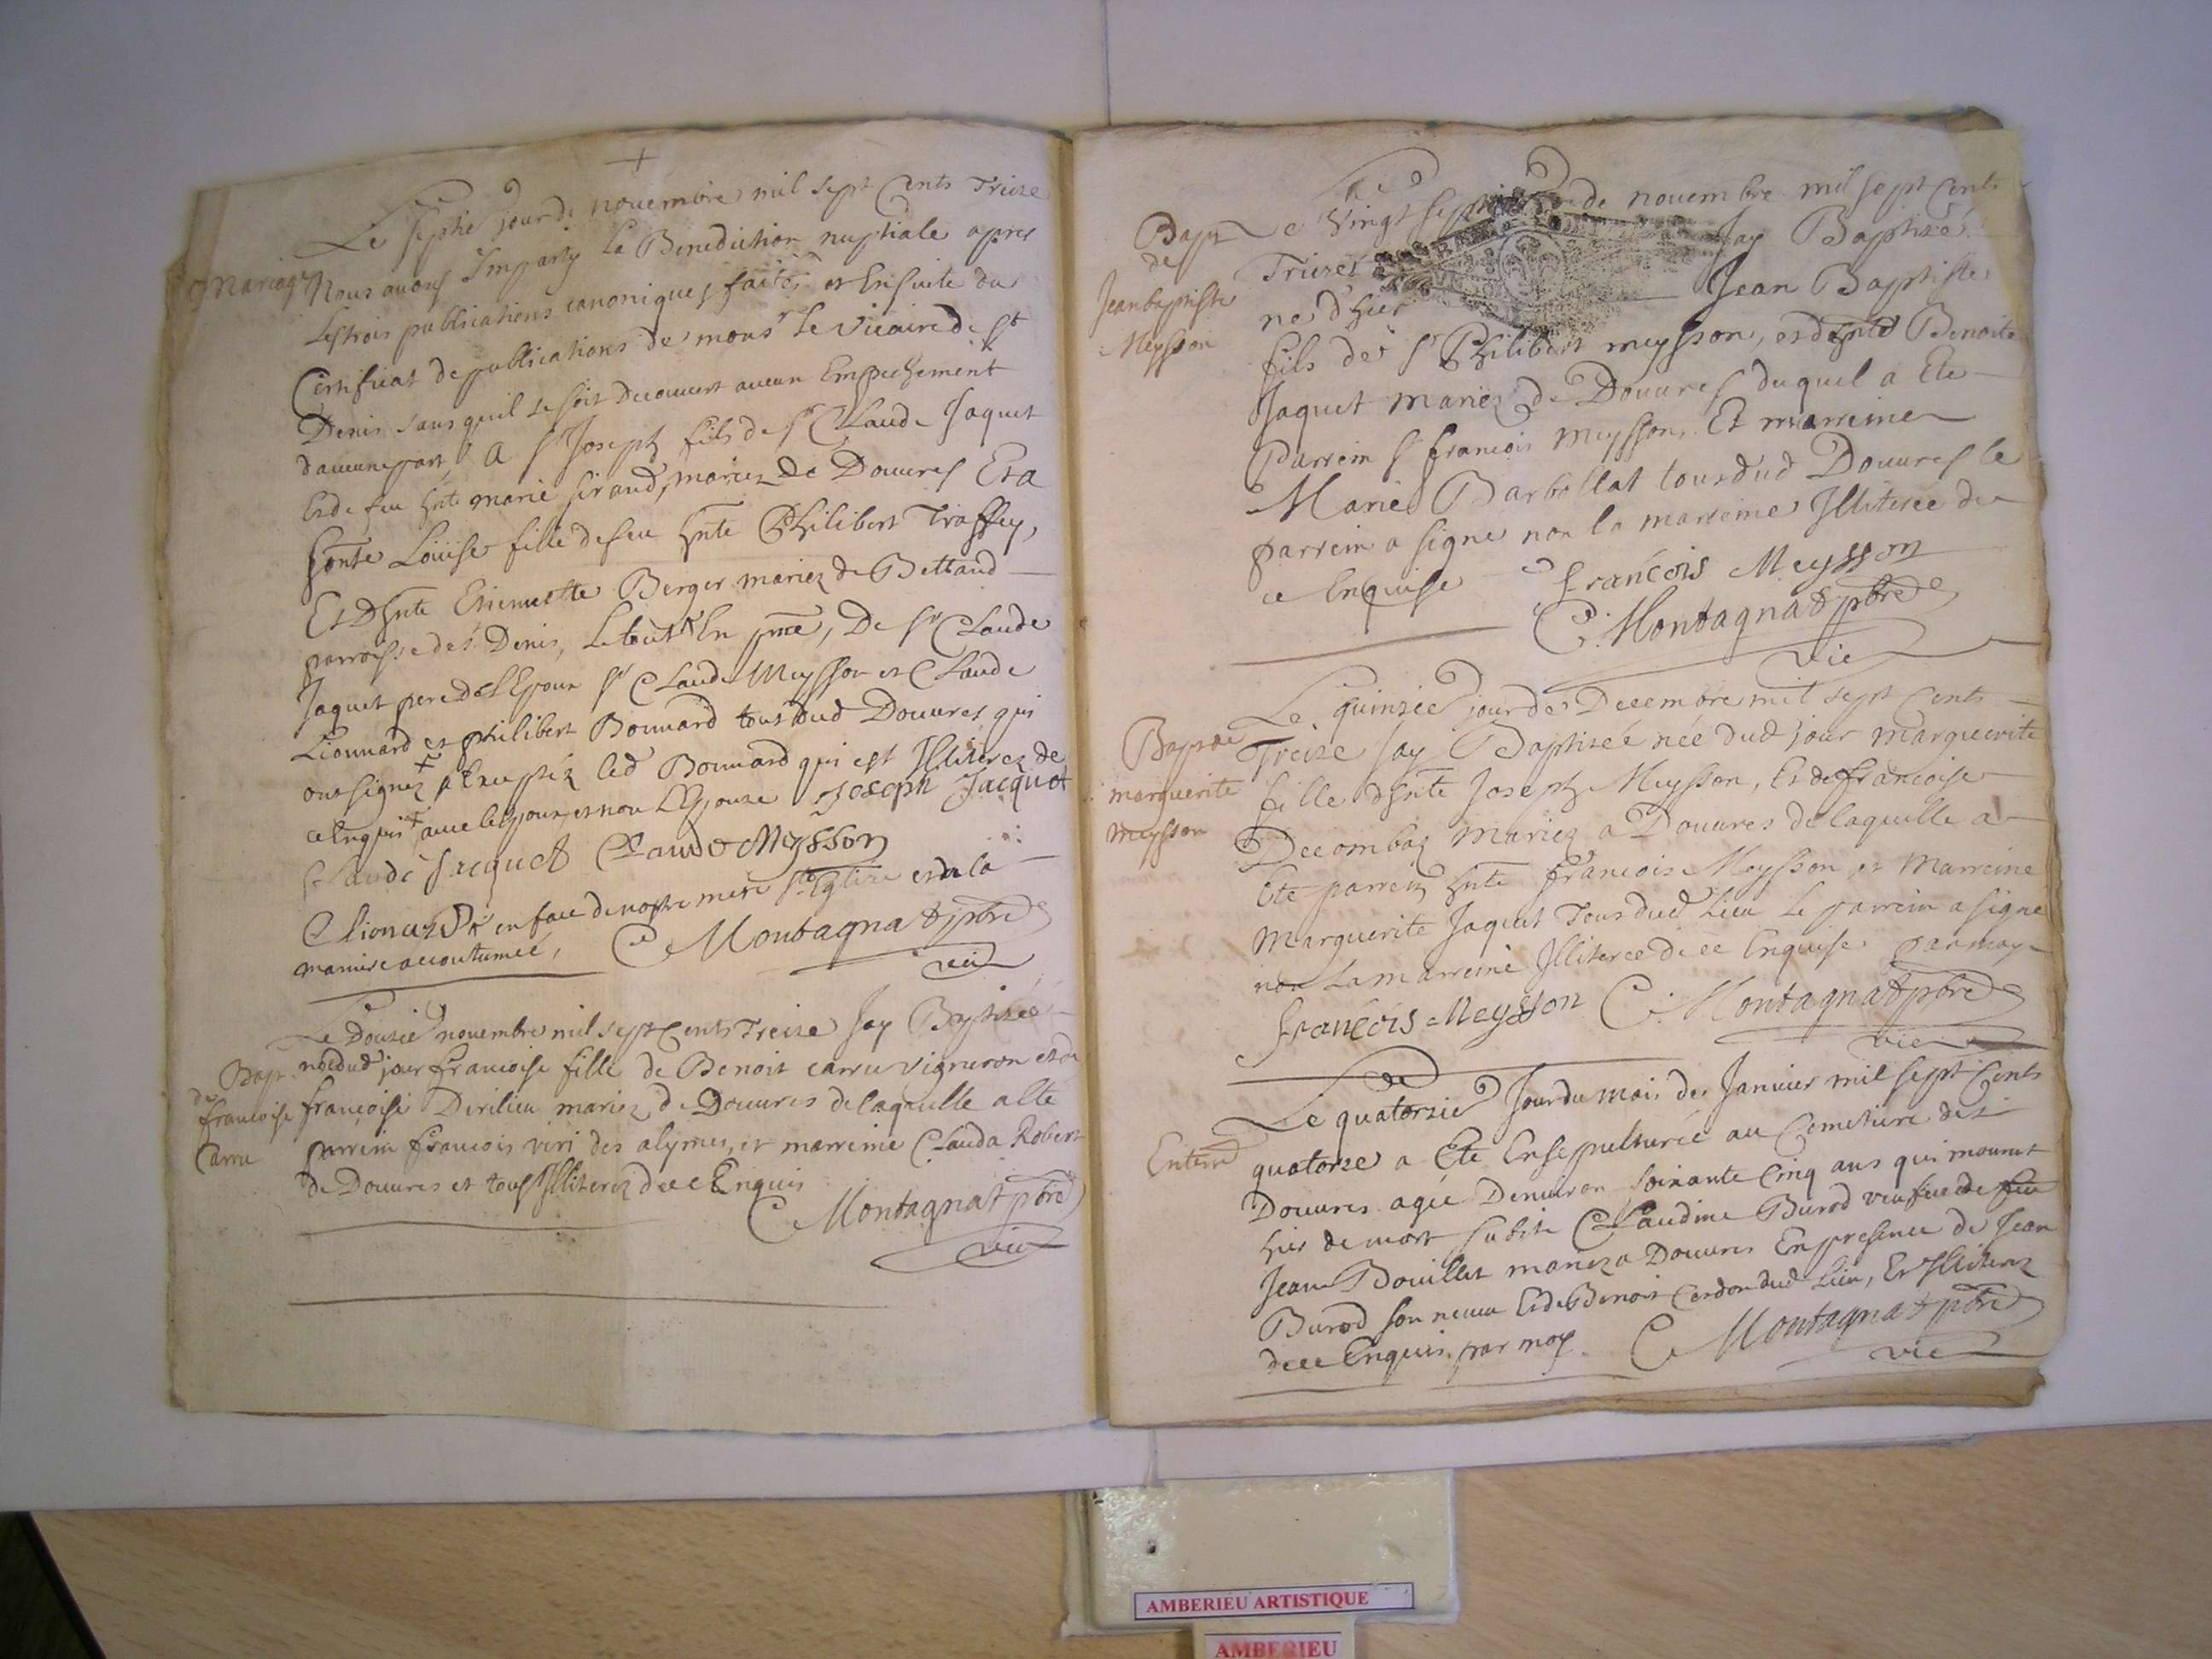 +
Le septie jour de novembre mil sept Cents Treize
Mariage
Nous avons Imparty la Benediction nuptiale apres
Les trois publications canoniques faites et Ensuite du
Certificat de publications de monsr Le Vicaire de St
Denis sans quil se soit decouvert aucun Empechement
daucune part, A sr Joseph fils de sr Claude Jaquet
Et de feu hnte marie siraud, mariez de Douvres Et a
honte Louise fille de feu hnte Philibert Traffey,
Et D'hnte Etiennette Berger mariez de Bettand
parroisse de St Denis, Le tout En pnce, De sr Claude
Jaquet pere de L'Epoux sr Claude Meysson et Claude
Lionnard et philibert Bonnard tous dud Douvres qui
ont signez + Exceptéz led Bonnard qui est Illiterez de
ce Enquis + avec lespoux, et non L'Epouze Joseph Jacquet
Claude Jacquet Claude Meysson
C Lionard en face de nostre mere Ste Eglise et a la
maniere accoutumée, C Montagnat pbre
vic
Le Douzie novembre mil sept Cents Treize Jay Baptizée
Bapt de francoise Carru
née dud jour francoise fille de Benoit carru vigneron et de
françoise Dirilieu mariez de Douvres de laquelle a Ete
parrein francois viri des alymes, et marreine Clauda Robert
de Douvres et tous Illiterez de ce Enquis
C Montagnat pbre
vic
Le Vingt septie de novembre mil sept Cents
Bapt de Jean baptiste Meysson
Treize Jay Baptizé
ne d'hier Jean Baptiste
fils de sr Philibert meysson, et d'hnte Benoite
Jaquet mariez de Douvres duquel a Ete
Parrein sr francois Meysson, Et marreine
Marie Barbollat tous dud Douvres le
parrein a signé non la marreine Illiterée de
ce Enquise françois Meysson
C. Montagnat pbre
vic
Le quinzie jour de Decembre mil sept Cents
Bapt de marguerite meysson
Treize Jay Baptizée née dud jour Marguerite
fille d'hnte Joseph Meysson, Et de francoise
Decombaz Mariez a Douvres de laquelle a
Ete parrein hnte francois Meysson, et Marreine
Marguerite Jaquet Tous dud Lieu Le parrein a signe
non La marreine Illiterée de ce Enquise par moy
françois Meysson C. Montagnat pbre
vic
Le quatorzie Jour du mois de Janvier mil sept Cents
Enterrt
quatorze a Ete Ensepulturée au Cemetiere de
Douvres agée Denviron soixante Cinq ans qui mourut
hier de mort subite Claudine Burod veufve de feu
Jean Bouillet mariez a Douvres En presence de Jean
Burod son neveu Et de Benoit Cerdon dud Lieu, Et Illiterez
de ce Enquis par moy. C Montagnat pbre
vic
AMBERIEU ARTISTIQUE
AMBERIEU